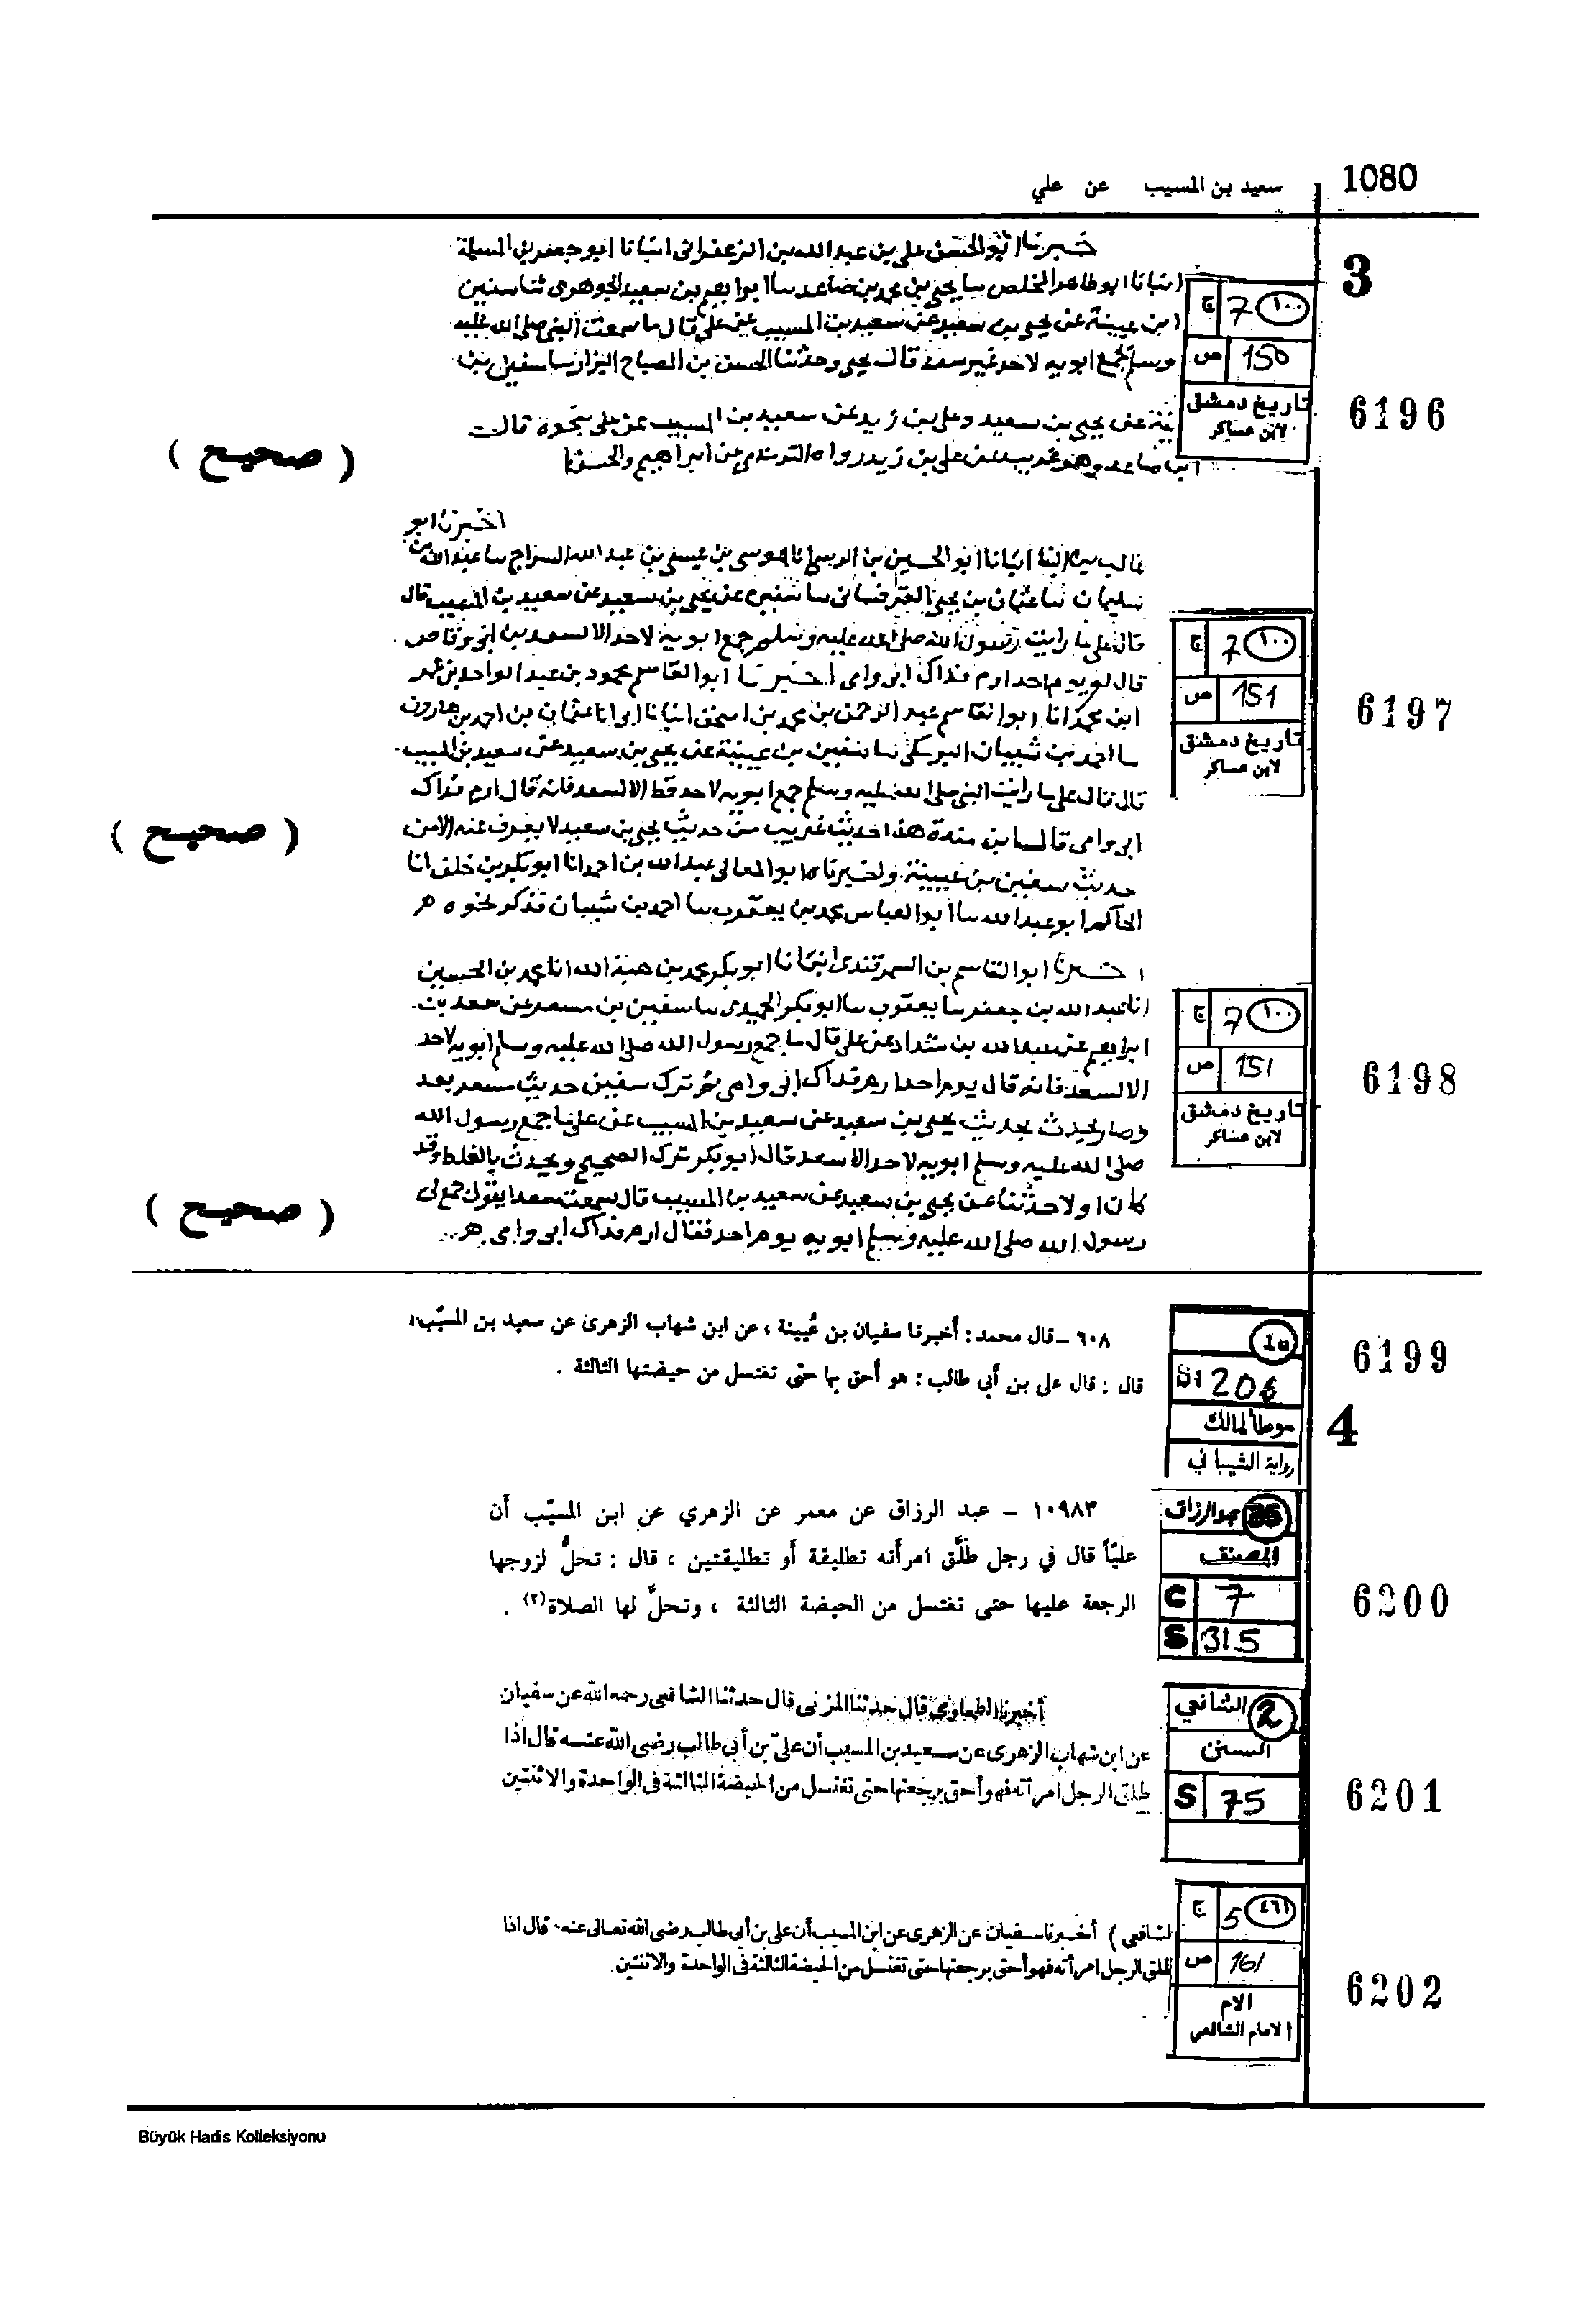 1080
سعيد بن المسيب عن علي
3
خبرنا ابو الحسن علي بن عبد الله بن الزعفراني انبانا ابو جعفر بن المسلمة
انبانا ابو طاهر المخلص سا يحيى بن محمد بن صاعد سا ابو ابرهيم بن سعيد الجوهري ثنا سفين
ابن عيينة عن يحيى بن سعيد عن سعيد بن المسيب عن علي قال ما سمعت النبي صلى الله عليه
وسلم جمع ابويه لاحد غير سعد قال يحيى وحدثنا الحسن بن الصباح البزار سا سفين بن
يينة عن يحيى بن سعيد وعلي بن زيد عن سعيد بن المسيب عن علي بنحوه قال
ابن صاعد وهو غريب عن علي بن زيد رواه الترمذي عن ابراهيم والحسن
ج 7 ١٠٠
ص 150
تاريخ دمشق
لابن عساكر
6196
( صحيح )
اخبرنا ابو
غالب بن البنا انبانا ابو الحسين بن انا موسى بن عيسى بن عبد الله السراج سا عبد الله بن
سليمان سا عثمان بن يحيى سا سفين عن يحيى بن سعيد عن سعيد بن المسيب قال
قال علي ما رايت رسول الله صلى الله عليه وسلم جمع ابويه لاحد الا لسعد بن ابي وقاص
قال له يوم احد ارم فداك ابي وامي اخبرنا ابو القاسم محمود بن عبد الواحد بن
ابن محمد انا ابو القاسم عبد الرحمن بن محمد بن اسحق انبانا ابي انا عثمان بن احمد بن هارون
سا احمد بن شيبان سا سفين بن عيينة عن يحيى بن سعيد عن سعيد بن المسيب
قال قال علي ما رايت النبي صلى الله عليه وسلم جمع ابويه لاحد قط الا لسعد فانه قال ارم فداك
ابي وامي قال ابن مندة هذا حديث غريب من حديث يحيى بن سعيد لا يعرف عنه الا من
حديث سفين بن عيينة واخبرنا ابو المعالي عبد الله بن احمد انا ابو بكر بن خلف انا
الحاكم ابو عبد الله سا ابو العباس محمد بن يعقوب سا احمد بن شيبان فذكر نحوه هر
ج 7 ١٠٠
ص 151
تاريخ دمشق
لابن عساكر
6197
( صحيح )
اخبرنا ابو القاسم بن السمرقندي انبانا ابو بكر محمد بن هبة الله انا محمد بن الحسين
انا عبد الله بن جعفر سا يعقوب سا ابو بكر الحميدي سا سفين بن مسعر عن سعد بن
ابراهيم عن عبد الله بن شداد عن علي قال ما جمع رسول الله صلى الله عليه وسلم ابويه لاحد
الا لسعد فانه قال يوم احد ارم فداك ابي وامي ثم ترك سفين حديث مسعر بعد
وصار يحدث بحديث يحيى بن سعيد عن سعيد بن المسيب عن علي ما جمع رسول الله
صلى الله عليه وسلم ابويه لاحد الا سعد قال ابو بكر ترك الصحيح ويحدث بالغلط وقد
كان اولا حدثنا عن يحيى بن سعيد عن سعيد بن المسيب قال سمعت سعدا يقول جمع لي
رسول الله صلى الله عليه وسلم ابويه يوم احد فقال ارم فداك ابي وامي هر..
ج 7 ١٠٠
ص 151
تاريخ دمشق
لابن عساكر
6198
( صحيح )
٦٠٨ – قال محمد : أخبرنا سفيان بن عُيينة ، عن ابن شهاب الزهرى عن سعيد بن المسيّب ،
قال : قال على بن أبى طالب : هو أحق بها حتى تغتسل من حيضتها الثالثة .
1a
S 206
موطأ لمالك
رواية الشيباني
6199
4
١٠٩٨٣ – عبد الرزاق عن معمر عن الزهري عن ابن المسيّب أن
عليّاً قال في رجل طلَّق امرأته تطليقة أو تطليقتين ، قال : تحلُّ لزوجها
الرجعة عليها حتى تغتسل من الحيضة الثالثة ، وتحلُّ لها الصلاة(٢) .
35 عبد الرزاق
المصنف
C 7
S 315
6200
أخبرنا الطحاوى قال حدثنا المزنى قال حدثنا الشافعى رحمه الله عن سفيان
عن ابن شهاب الزهرى عن سعيد بن المسيب أن علىّ بن أبى طالب رضى الله عنه قال اذا
طلق الرجل امرأته فهو أحق برجعتها حتى تغتسل من الحيضة الثالثة فى الواحدة والاثنتين
2 الشافعي
السنن
S 75
6201
لشافعى ) أخبرنا سفيان عن الزهرى عن ابن المسيب أن على بن أبى طالب رضى الله تعالى عنه قال اذا
طلق الرجل امرأته فهو أحق برجعتها حتى تغتسل من الحيضة الثالثة فى الواحدة والاثنتين .
ج 5 ٤٦١
ص 161
الام
الامام الشافعي
6202
Büyük Hadis Kolleksiyonu